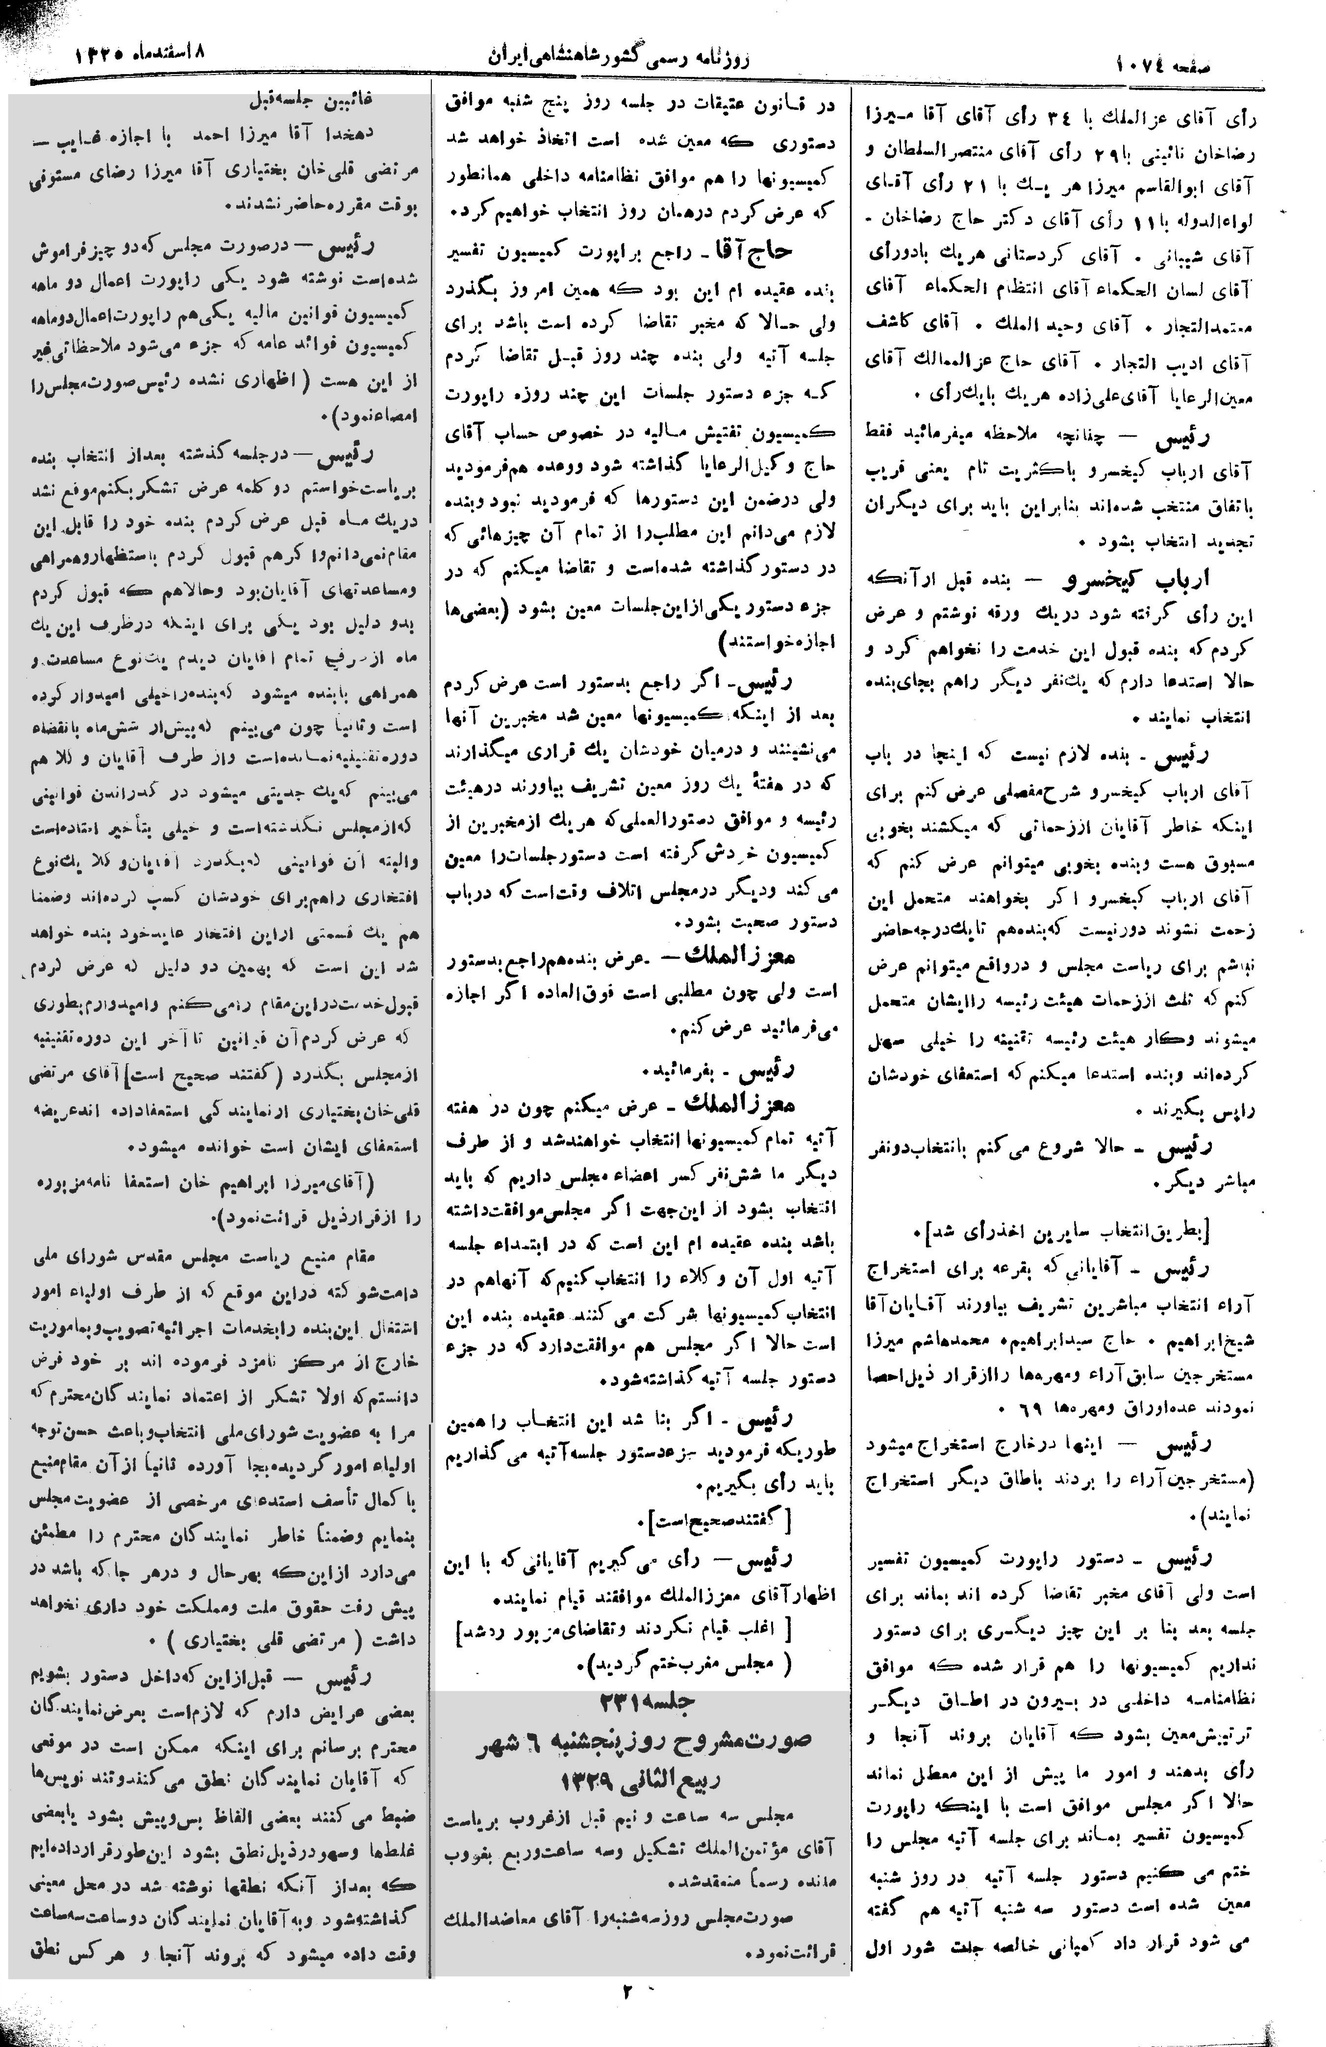 صفحه ۱۰۷٤
روزنامه رسمی کشور شاهنشاهی ایران
۸ اسفندماه ۱۳۲۵
رأی آقای عزالملك با ۳٤ رأی آقای آقا میرزا
رضاخان نائینی با ۲۹ رأی آقای منتصرالسلطان و
آقای ابوالقاسم میرزا هر یك با ۲۱ رأی آقای
لواءالدوله با ۱۱ رأی آقای دکتر حاج رضاخان -
آقای شیبانی ۰ آقای کردستانی هریك بادورأی
آقای لسان الحکماء آقای انتظام الحکماء آقای
معتمدالتجار ۰ آقای وحید الملك ۰ آقای کاشف
آقای ادیب التجار ۰ آقای حاج عزالممالك آقای
معین‌الرعایا آقای علی‌زاده هریك بایك رأی ۰
رئیس — چنانچه ملاحظه میفرمائید فقط
آقای ارباب کیخسرو باکثریت تام یعنی قریب
باتفاق منتخب شده‌اند بنابراین باید برای دیگران
تجدید انتخاب بشود ۰
ارباب کیخسرو — بنده قبل از آنکه
این رأی گرفته شود دریك ورقه نوشتم و عرض
کردم که بنده قبول این خدمت را نخواهم کرد و
حالا استدعا دارم که یك‌نفر دیگر راهم بجای بنده
انتخاب نمایند ۰
رئیس - بنده لازم نیست که اینجا در باب
آقای ارباب کیخسرو شرح مفصلی عرض کنم برای
اینکه خاطر آقایان اززحماتی که میکشند بخوبی
مسبوق هست وبنده بخوبی میتوانم عرض کنم که
آقای ارباب کیخسرو اگر بخواهند متحمل این
زحمت نشوند دورنیست که‌بنده‌هم تایك‌درجه‌حاضر
نباشم برای ریاست مجلس و درواقع میتوانم عرض
کنم که ثلث اززحمات هیئت رئیسه راایشان متحمل
میشوند وکار هیئت رئیسه تقنینه را خیلی سهل
کرده‌اند وبنده استدعا میکنم که استعفای خودشان
راپس بگیرند ۰
رئیس - حالا شروع می‌کنم بانتخاب‌دونفر
مباشر دیگر.
[بطریق‌انتخاب سایرین اخذرأی شد].
رئیس - آقایانی که بقرعه برای استخراج
آراء انتخاب مباشرین تشریف بیاورند آقایان‌آقا
شیخ‌ابراهیم ۰ حاج سیدابراهیم۰ محمدهاشم میرزا
مستخرجین سابق‌آراء ومهره‌ها راازقرار ذیل‌احصا
نمودند عده‌اوراق ومهره‌ها ٦۹ ۰
رئیس — اینها درخارج استخراج میشود
(مستخرجین‌آراء را بردند باطاق دیگر استخراج
نمایند).
رئیس - دستور راپورت کمیسیون تفسیر
است ولی آقای مخبر تقاضا کرده اند بماند برای
جلسه بعد بنا بر این چیز دیگری برای دستور
نداریم کمیسیونها را هم قرار شده که موافق
نظامنامه داخلی در بیرون در اطاق دیگر
ترتیبش‌معین بشود که آقایان بروند آنجا و
رأی بدهند و امور ما پیش از این معطل نماند
حالا اگر مجلس موافق است با اینکه راپورت
کمیسیون تفسیر بماند برای جلسه آتیه مجلس را
ختم می کنیم دستور جلسه آتیه در روز شنبه
معین شده است دستور سه شنبه آتیه هم گفته
می شود قرار داد کمپانی خالصه جلت شور اول
در قانون عتیقات در جلسه روز پنج شنبه موافق
دستوری که معین شده است اتخاذ خواهد شد
کمیسیونها را هم موافق نظامنامه داخلی همانطور
که عرض کردم درهمان روز انتخاب خواهیم کرد.
حاج آقا - راجع براپورت کمیسیون تفسیر
بنده عقیده ام این بود که همین امروز بگذرد
ولی حالا که مخبر تقاضا کرده است باشد برای
جلسه آتیه ولی بنده چند روز قبل تقاضا کردم
که جزء دستور جلسات این چند روزه راپورت
کمیسیون تفتیش مالیه در خصوص حساب آقای
حاج وکیل‌الرعایا گذاشته شود ووعده هم‌فرمودید
ولی درضمن این دستورها که فرمودید نبود وبنده
لازم می‌دانم این مطلب‌را از تمام آن چیزهائی که
در دستور گذاشته شده‌است و تقاضا میکنم که در
جزء دستور یکی‌ازاین‌جلسات معین بشود (بعضی‌ها
اجازه‌خواستند)
رئیس- اگر راجع بدستور است عرض کردم
بعد از اینکه کمیسیونها معین شد مخبرین آنها
می‌نشینند و درمیان خودشان یك قراری میگذارند
که در هفتهٔ یك روز معین تشریف بیاورند درهیئت
رئیسه و موافق دستورالعملی‌که هریك ازمخبرین از
کمیسیون خردش‌گرفته است دستورجلسات‌را معین
می کند ودیگر درمجلس اتلاف وقت‌است که درباب
دستور صحبت بشود.
معززالملك — عرض بنده‌هم‌راجع بدستور
است ولی چون مطلبی است فوق‌العاده اگر اجازه
می‌فرمائید عرض کنم.
رئیس - بفرمائید.
معززالملك - عرض میکنم چون در هفته
آتیه تمام کمیسیونها انتخاب خواهندشد و از طرف
دیگر ما شش‌نفر کسر اعضاء مجلس داریم که باید
انتخاب بشود از این‌جهت اگر مجلس‌موافقت‌داشته
باشد بنده عقیده ام این است که در ابتداء جلسه
آتیه اول آن وکلاء را انتخاب کنیم‌که آنهاهم در
انتخاب کمیسیونها شرکت می کنند عقیده بنده این
است حالا اگر مجلس هم موافقت‌دارد که در جزء
دستور جلسه آتیه گذاشته‌شود.
رئیس - اگر بنا شد این انتخاب را همین
طوریکه فرمودید جزءدستور جلسه‌آتیه می گذاریم
باید رأی بگیریم.
[گفتند صحیح‌است].
رئیس — رأی می گیریم آقایانی که با این
اظهارآقای معززالملك موافقند قیام نمایند.
[ اغلب قیام نکردند وتقاضای‌مزبور ردشد]
( مجلس مغرب‌ختم گردید).
جلسه ۲۳۱
صورت‌مشروح روزپنجشنبه ٦ شهر
ربیع الثانی ۱۳۲۹
مجلس سه ساعت و نیم قبل ازغروب بریاست
آقای مؤتمن‌الملك تشکیل وسه ساعت‌وربع بغروب
مانده رسماً منعقدشد.
صورت‌مجلس روزسه‌شنبه‌را آقای معاضدالملك
قرائت‌نمود.
غائبین جلسه‌قبل
دهخدا آقا میرزا احمد با اجازه غایب —
مرتضی قلی‌خان بختیاری آقا میرزا رضای مستوفی
بوقت مقرره‌حاضر نشدند.
رئیس — درصورت مجلس که‌دو چیزفراموش
شده‌است نوشته شود یکی راپورت اعمال دو ماهه
کمیسیون قوانین مالیه یکی‌هم راپورت‌اعمال‌دوماهه
کمیسیون فوائد عامه که جزء می‌شود ملاحظاتی‌غیر
از این هست ( اظهاری نشده رئیس‌صورت‌مجلس‌را
امضاءنمود).
رئیس — درجلسه گذشته بعداز انتخاب بنده
بریاست‌خواستم دوکلمه عرض تشکر بکنم‌موقع نشد
دریك ماه قبل عرض کردم بنده خود را قابل این
مقام‌نمی‌دانم‌واگرهم قبول کردم باستظهاروهمراهی
ومساعدتهای آقایان‌بود وحالاهم که قبول کردم
بدو دلیل بود یکی برای اینکه درظرف این‌یك
ماه ازطرف تمام آقایان دیدم یك‌نوع مساعدت و
همراهی بابنده میشود که‌بنده‌راخیلی امیدوار کرده
است وثانیاً چون می‌بینم که‌بیش‌از شش‌ماه بانقضاء
دوره‌تقنینیه‌نمانده‌است واز طرف آقایان وکلا هم
می‌بینم که‌یك جدیتی میشود در گذراندن قوانینی
که‌ازمجلس نگذشته‌است و خیلی بتأخیر افتاده‌است
والبته آن قوانینی که‌بگذرد آقایان‌وکلا یك‌نوع
افتخاری راهم‌برای خودشان کسب کرده‌اند وضمناً
هم یك قسمتی ازاین افتخار عایدخود بنده خواهد
شد این است که بهمین دو دلیل که عرض کردم
قبول‌خدمت‌دراین‌مقام رامی‌کنم وامیدوارم‌بطوری
که عرض کردم‌آن قوانین تاآخر این دوره‌تقنینیه
ازمجلس بگذرد (گفتند صحیح است] آقای مرتضی
قلی‌خان‌بختیاری ازنمایندگی استعفاداده اندعریضه
استعفای ایشان است خوانده میشود.
(آقای‌میرزا ابراهیم خان استعفا نامه‌مزبوره
را ازقرارذیل قرائت‌نمود).
مقام منیع ریاست مجلس مقدس شورای ملی
دامت‌شوکته دراین موقع که از طرف اولیاء امور
اشتغال این‌بنده رابخدمات اجرائیه‌تصویب‌وبماموریت
خارج از مرکز نامزد فرموده اند بر خود فرض
دانستم‌که اولا تشکر از اعتماد نمایندگان‌محترم‌که
مرا به عضویت شورای‌ملی انتخاب‌وباعث حسن‌توجه
اولیاء امور گردیده‌بجا آورده ثانیاً ازآن مقام‌منیع
باکمال تأسف استدعای مرخصی از عضویت‌مجلس
بنمایم وضمناً خاطر نمایندگان محترم را مطمئن
می‌دارد ازاین‌که بهرحال و درهر جا که باشد در
پیش رفت حقوق ملت ومملکت خود داری نخواهد
داشت ( مرتضی قلی بختیاری ) .
رئیس — قبل‌ازاین که‌داخل دستور بشویم
بعضی عرایض دارم که لازم‌است بعرض‌نمایندگان
محترم برسانم برای اینکه ممکن است در موقعی
که آقایان نمایندگان نطق می‌کنندوتند نویس‌ها
ضبط می‌کنند بعضی الفاظ پس‌وپیش بشود یابعضی
غلط‌ها وسهودرذیل‌نطق بشود این‌طورقرارداده‌ایم
که بعداز آنکه نطقها نوشته شد در محل معینی
گذاشته‌شود وبه‌آقایان نمایندگان دوساعت‌سه‌ساعت
وقت داده میشود که بروند آنجا و هرکس نطق
۲